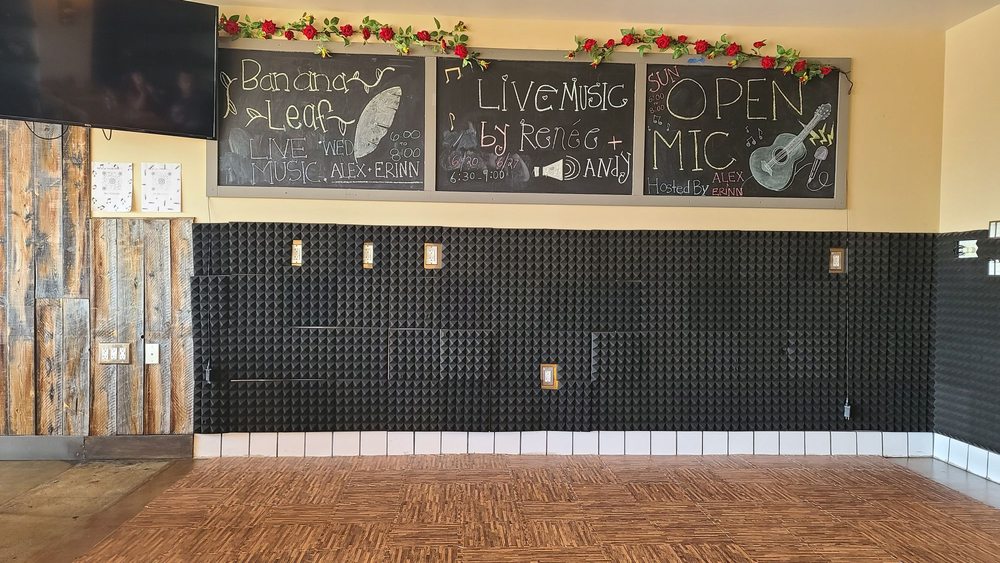 Banana
Leaf
LIVE
MUSIC
WED
6:00
to
8:00
ALEX + ERINN
LIVE MUSIC
by Renée +
ANDY
6/20
6/27
6:30-9:00
SUN
OPEN
MIC
Hosted By
ALEX
ERINN